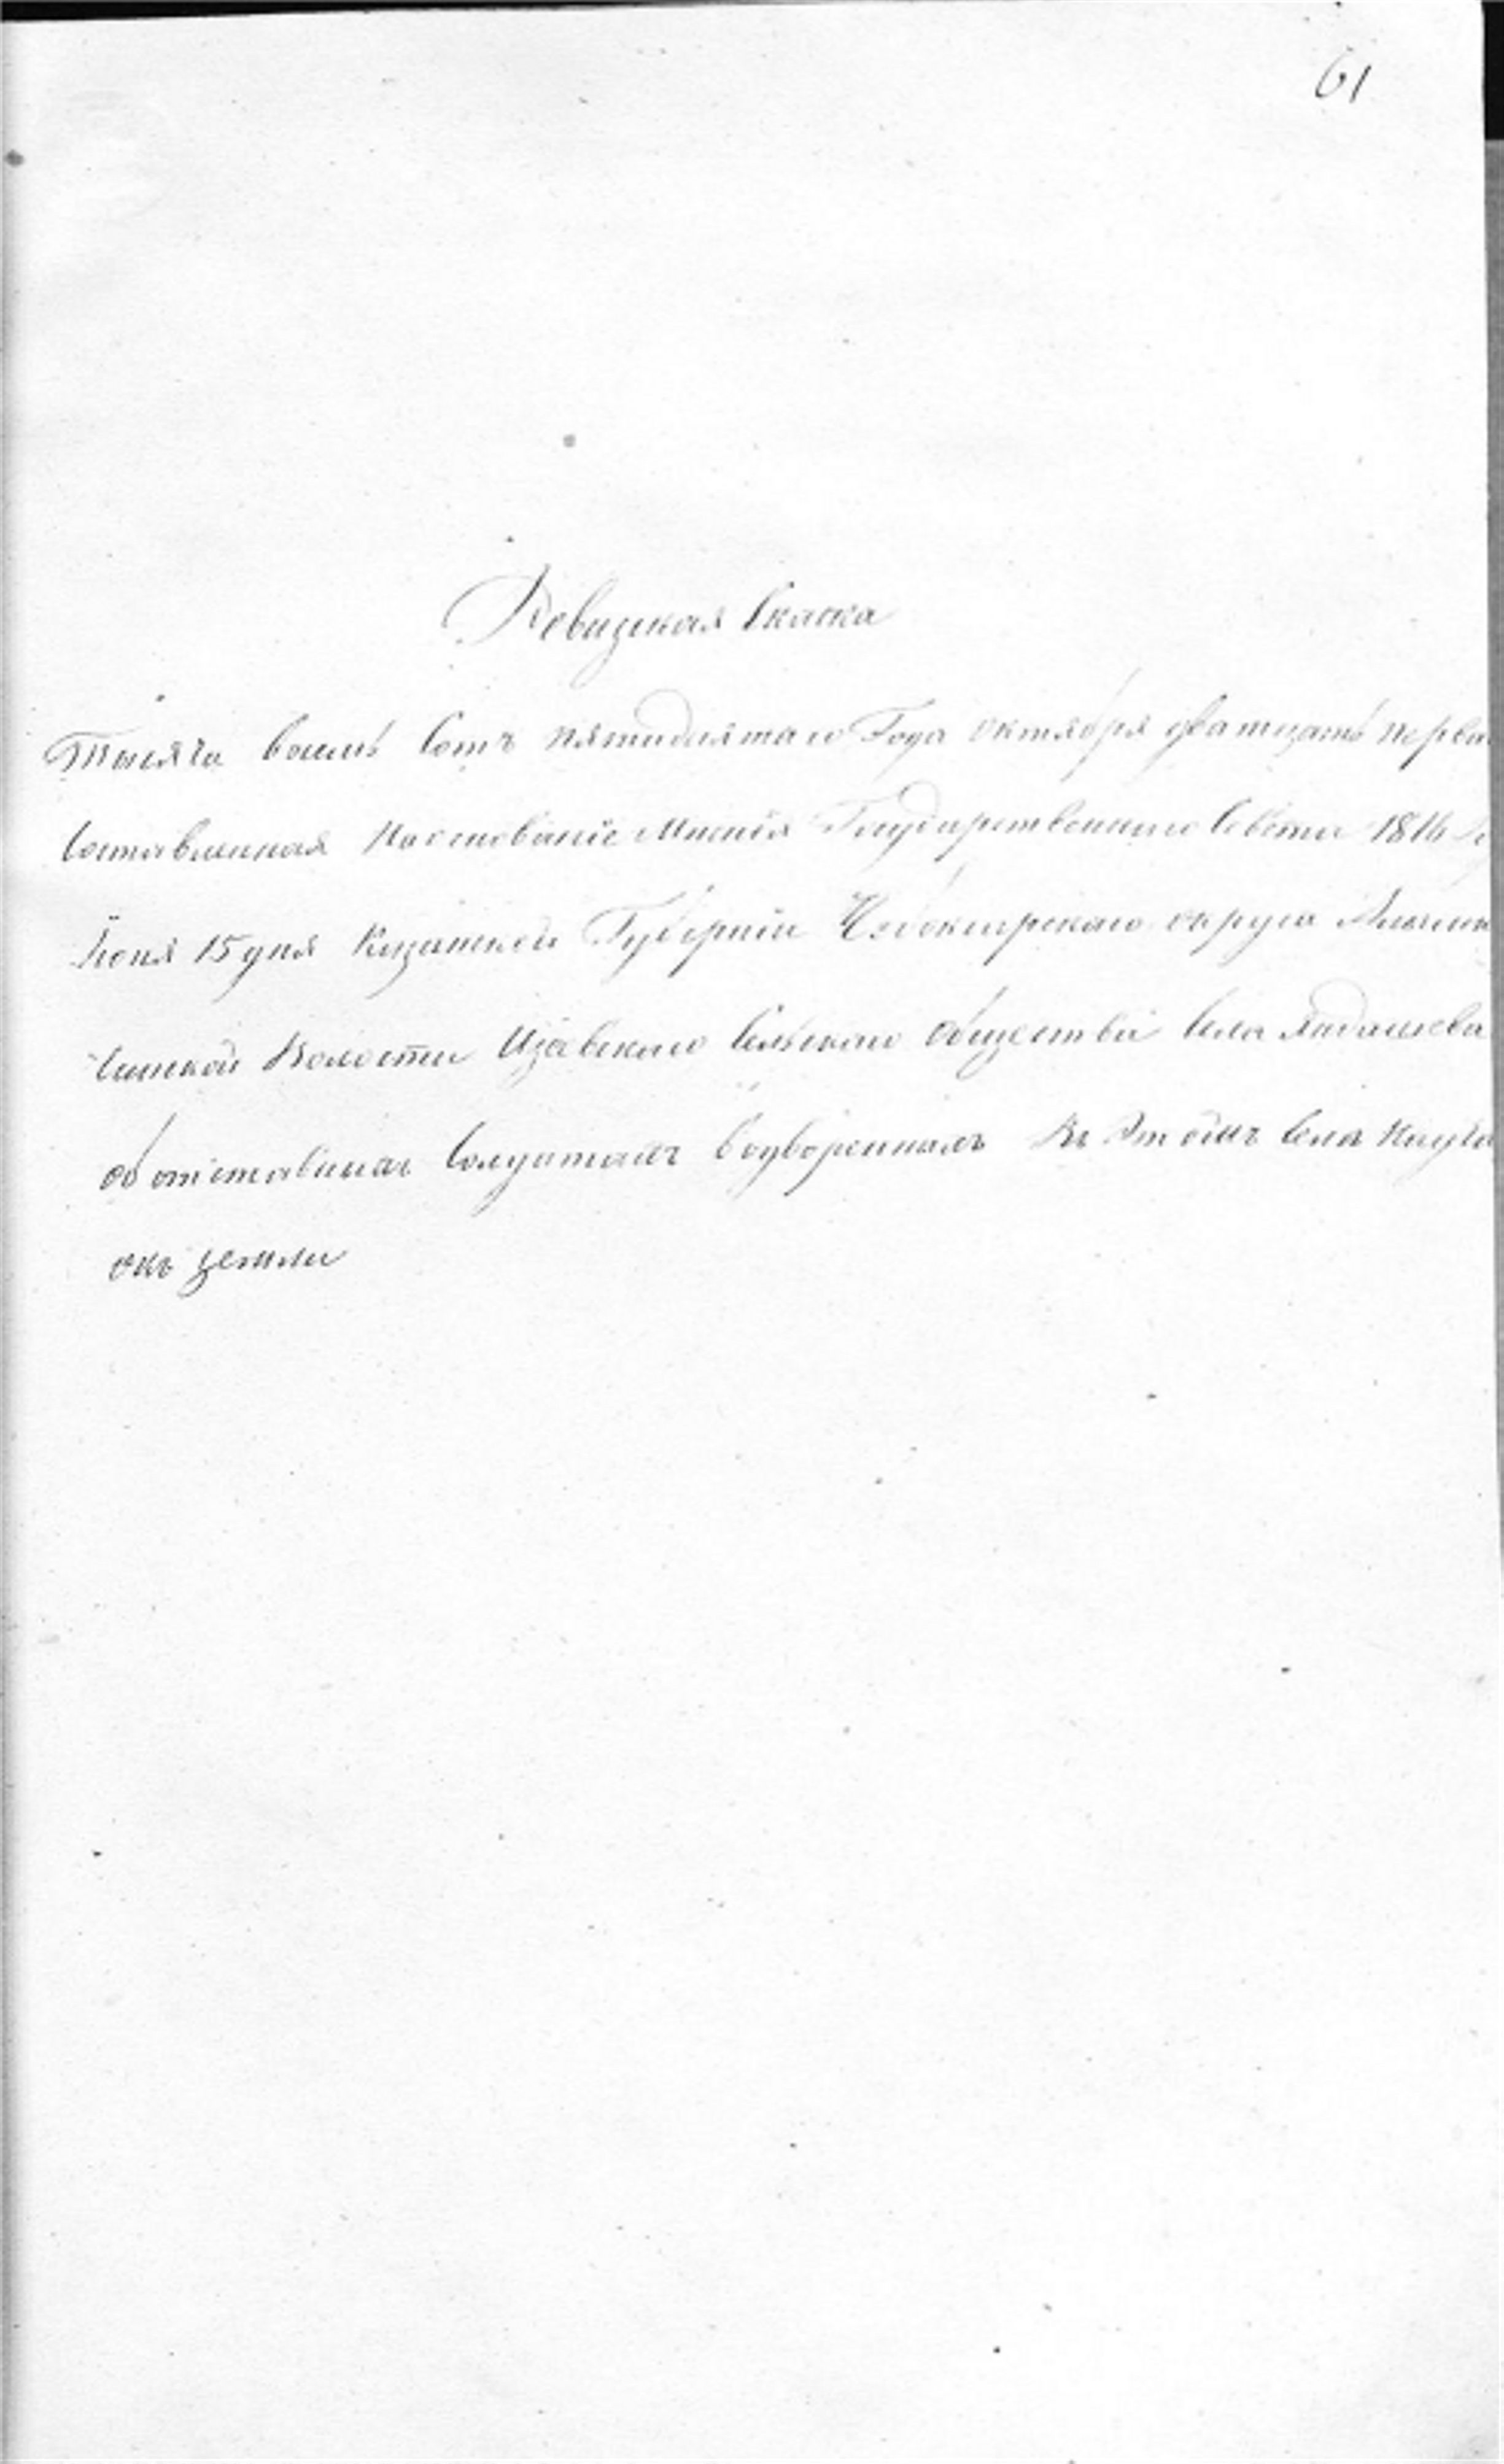 61
Ревизская Скаска
Тысяча восемь Сотъ пятидесятаго Года октября дватцать перва
Составленная На основаніе Мнѣнія Государственнаго Совѣта 1816
Іюня 15 дня Казанской Губерніи Чебоксарскаго округа
Волости Сельскаго Общества Села
об отставныхъ Солдатахъ водворенныхъ Въ Этомъ Села
окъ земли